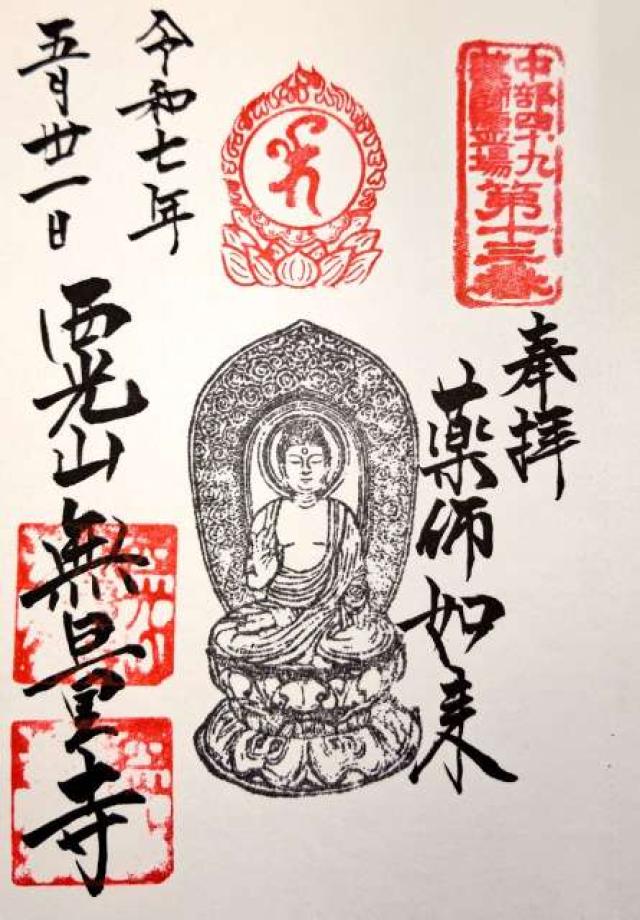 中部四十九
薬師霊場第十三番
奉拝
薬師如来
令和七年
五月廿一日
西光山無量寺